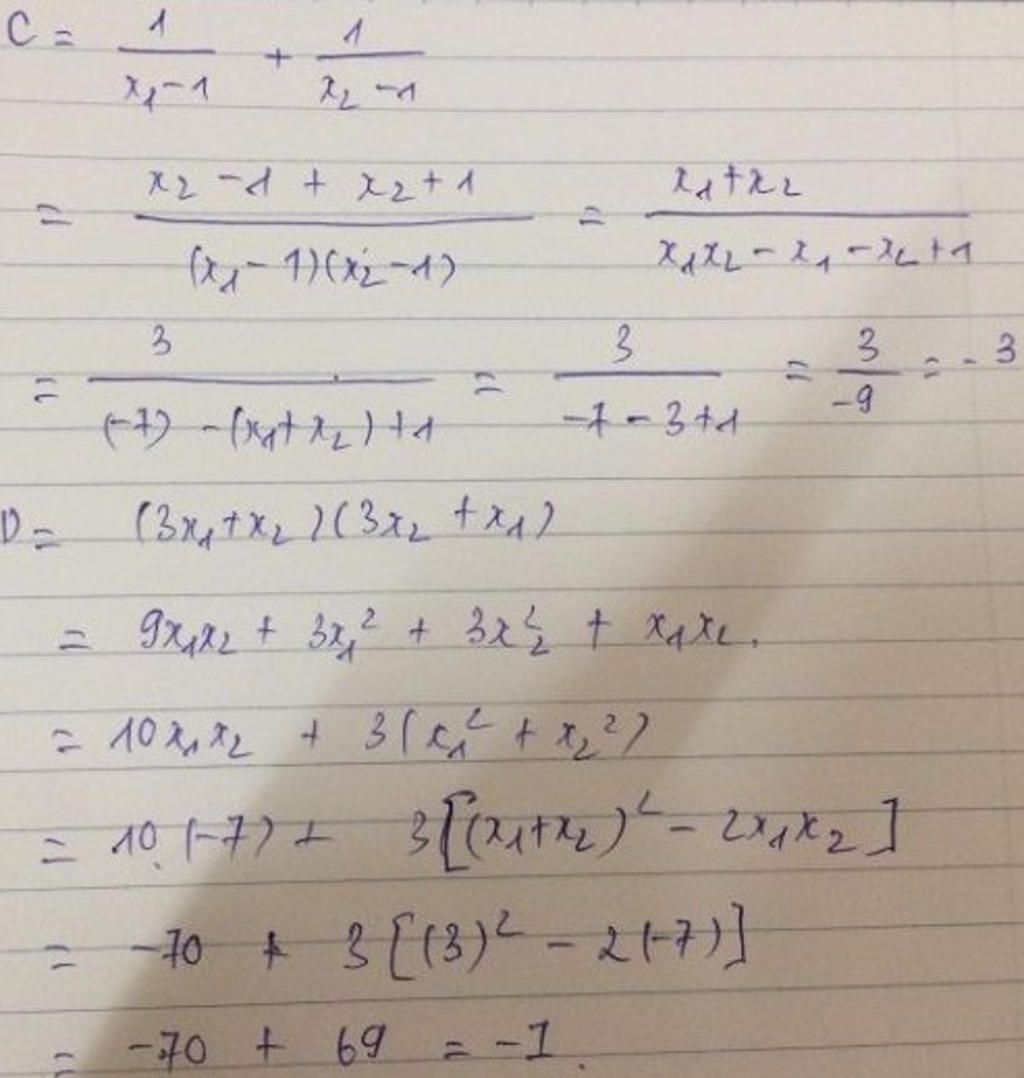 C = 1/(x₁ - 1) + 1/(x₂ - 1)
= (x₂ - 1 + x₂ + 1)/((x₁ - 1)(x₂ - 1)) = (x₁ + x₂)/(x₁x₂ - x₁ - x₂ + 1)
= 3/((-7) - (x₁ + x₂) + 1) = 3/(-7 - 3 + 1) = 3/(-9) = - 3
D = (3x₁ + x₂)(3x₂ + x₁)
= 9x₁x₂ + 3x₁² + 3x₂² + x₁x₂.
= 10x₁x₂ + 3(x₁² + x₂²)
= 10.(-7) + 3[(x₁ + x₂)² - 2x₁x₂]
= -70 + 3[(3)² - 2(-7)]
= -70 + 69 = -1.